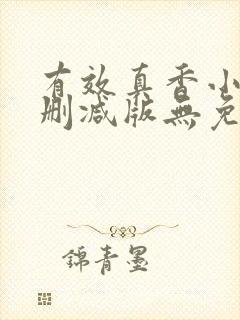 有效真香小
删减版無免
錦青墨